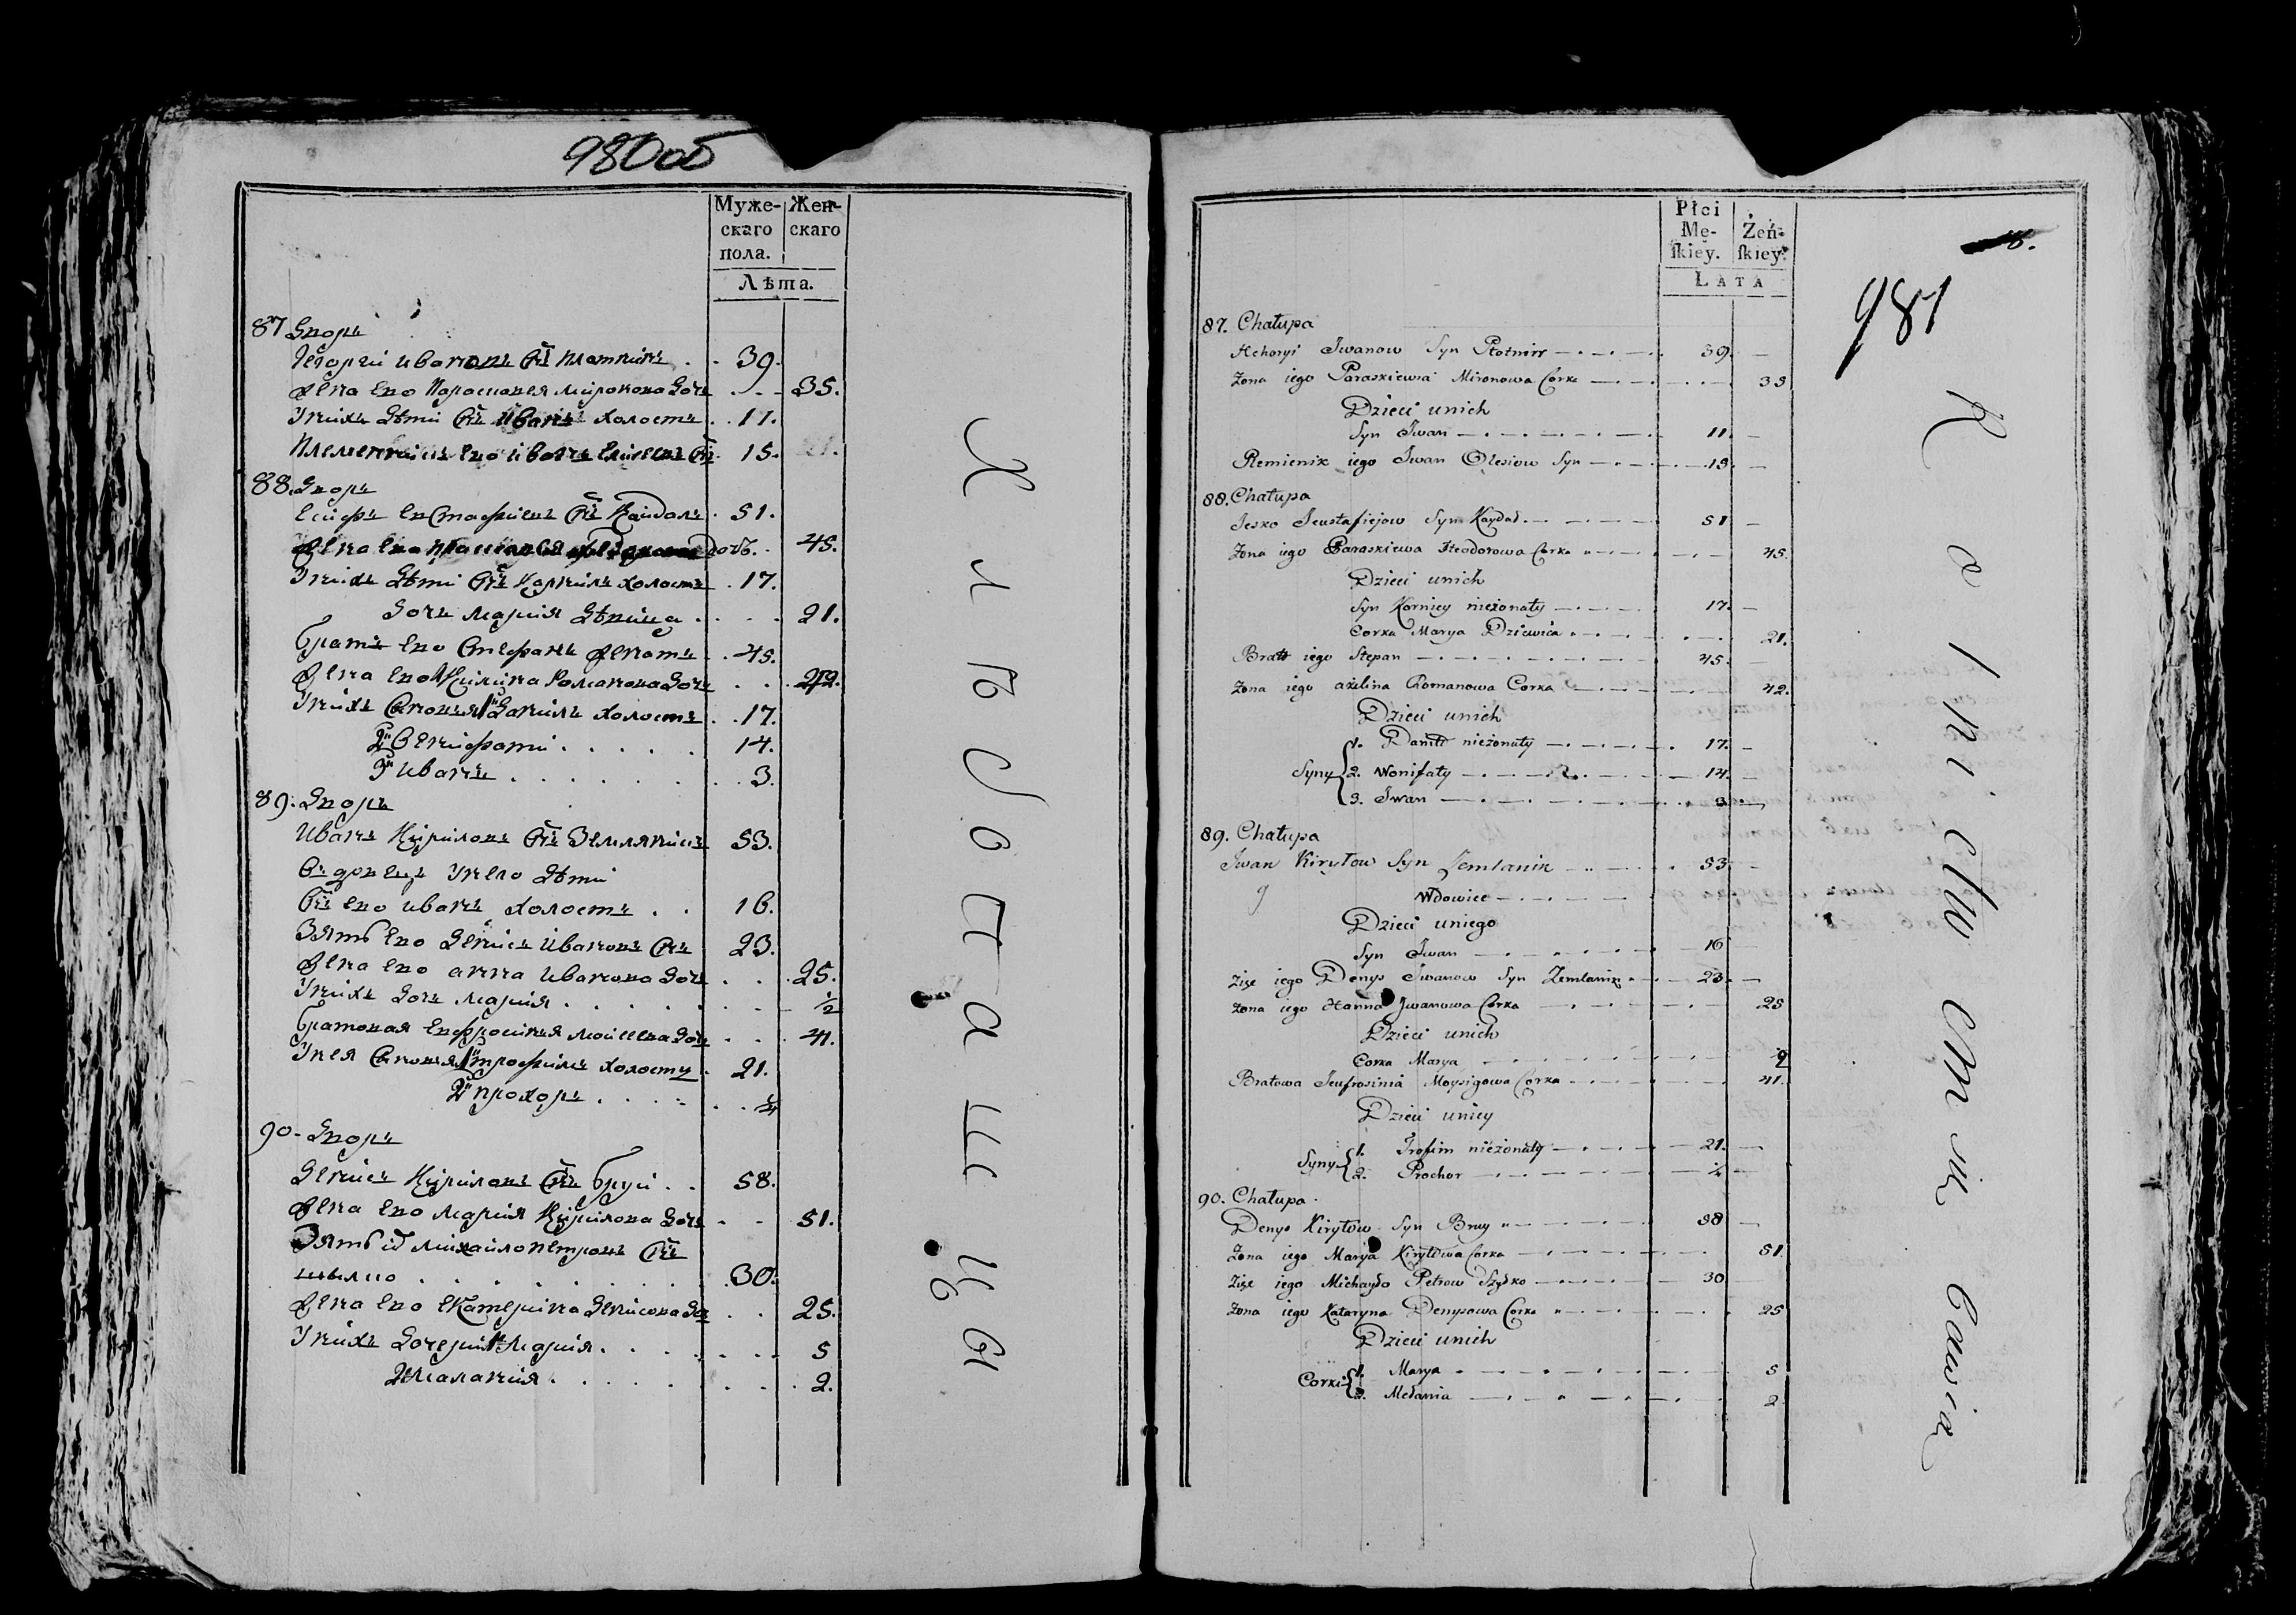 980об
Муже- Жен-
скаго скаго
пола.
Лѣта.
87 Дворъ
Георгій Ивановъ Снъ Плотникъ 39.
Жена Его Парасковея Миронова Дочь 35.
У нихъ Дѣти Снъ Иванъ холостъ 11.
Племенникъ Его Иванъ Снъ 15.
88. Дворъ
Евстафіевъ Снъ Кайдалъ 51.
Жена Его Дочь 45.
У нихъ Дѣти Снъ Корнилъ холостъ 17.
Дочь Марія Дѣвица 21.
Братъ Его Стефанъ Женатъ 45.
Жена Его Романова Дочь 42.
У нихъ Сыновья 1й Данилъ холостъ 17.
2й Венифатій 14.
3й Иванъ 3.
89. Дворъ
Иванъ Куриловъ Снъ Землянікъ 53.
Вдовецъ У него Дѣти
Снъ Его Иванъ холостъ 16.
Зять Его Денисъ Ивановъ Снъ 23.
Жена Его Анна Иванова Дочь 25.
У нихъ Дочь Марія ½
Братовая Евфросинія Моисеева Дочь 41.
У нея Сыновья 1й Трофимъ холостъ 21.
2й Прохоръ ¼
90. Дворъ
Денисъ Куриловъ Снъ Бруй 58.
Жена Его Марія Курилова Дочь 51.
Зять Михайло Петровъ Снъ
Шылко 30.
Жена Его Екатерина Денисова Дочь 25.
У нихъ Дочери 1 Марія 5
2 Маланія 2.
Хлѣбопашцы
Płci
Mę- Żeń-
ſkiey. ſkiey.
LATA
981
87. Chałupa
Hehoryi Iwanow Syn Płotnirr 39
Zona iego Paraskiewia Mironowa Corka 35
Dzieci unich
Syn Iwan 11
Plemienik iego Iwan Olesiow Syn 15
88. Chałupa
Iesko Ieustafiejow Syn Kaydał 51
Zona iego Paraskiewa Fteodorowa Corka 45
Dzieci unich
Syn Korniey nieżonaty 17
Corka Marya Dziewica 21.
Brat iego Stepan 45
Zona iego akilina Romanowa Corka 42
Dzieci unich
Syny 1. Daniło nieżonaty 17
2. Wonifaty 14
3. Iwan 3
89. Chałupa
Iwan Kiryłow Syn Zemlanik 53
Wdowiec
Dzieci uniego
Syn Iwan 16
Zięc iego Denys Iwanow Syn Zemlanik 23
Zona iego Hanna Iwanowa Corka 25
Dzieci unich
Corka Marya ½
Bratowa Ieufrosinia Moysigowa Corka 41
Dzieci uniey
Syny 1. Trofim nieżonaty 21
2. Prochor ¼
90. Chałupa
Denys Kiryłow Syn Bruy 58
Zona iego Marya Kiryłowa Corka 51
Zięc iego Michayło Petrow Szyłko 30
Zona iego Kataryna Denysowa Corka 25
Dzieci unich
Corki 1. Marya 5
2. Mełania 2